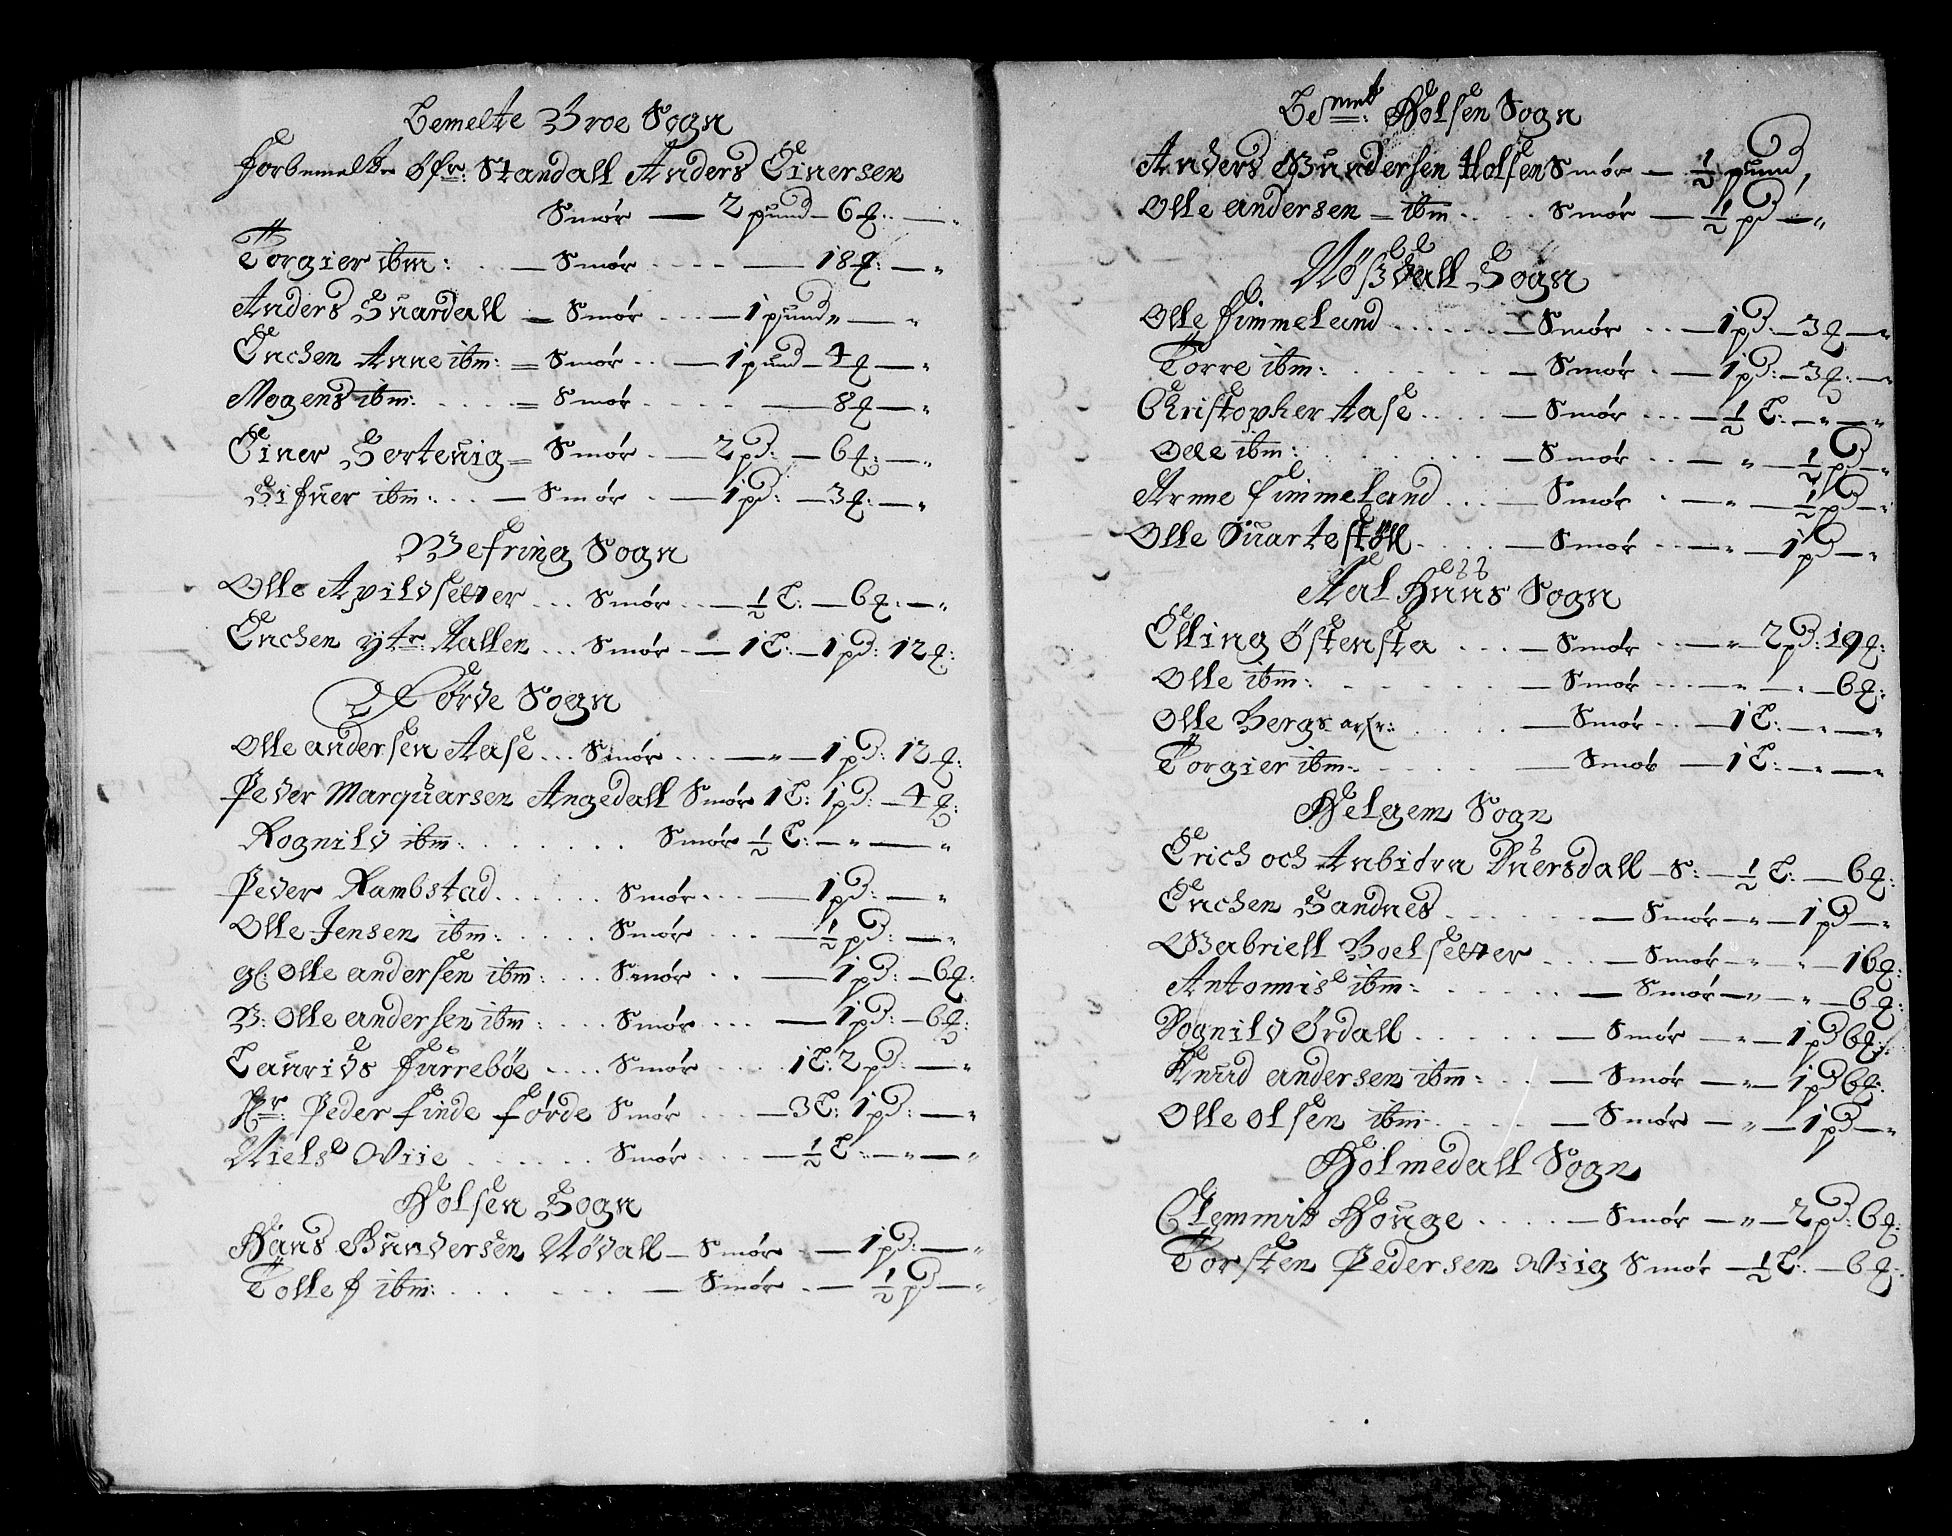 bemelte Broe Sogn
Forbemelte Øfr: Standall Anders Einersen
Smør — 2 pund — 6 ℔: —
Torgier ibm: . . — Smør . . . . — 18 ℔: — „
Anders Huardall — Smør . . . — 1 pund „ — „
Enchen Anne ibm: = Smør . . — 1 pund — 4 ℔ — „
Mogens ibm: . . . . = Smør . . . . . — 8 ℔ — „
Einer Herteuig = Smør . . — 2 pd: — 6 ℔: — „
Sifuer ibm: . . . — Smør . — 1 pd: — 3 ℔: — „
Wefring Sogn
Olle Apildsetter . . . Smør . . — ½ L: — 6 ℔: — „
Enchen ytr: Hallen . . . Smør . — 1 L: — 1 pd: 12 ℔:
Førde Sogn
Olle andersen Aase . . . Smør . . . — „ — 1 pd: 12 ℔:
Peder Marquarsen Angedall Smør 1 L: 1 pd: — 4 ℔:
Rognild ibm: . . . . . . . Smør ½ L: — „ — „
Peder Rambstad . . . . . . Smør . . . — 1 pd: — „
Olle Jensen ibm: . . . . . Smør . . . — ½ pd: — „
gl: Olle andersen ibm: . . . Smør . . — 1 pd: — 6 ℔:
V: Olle andersen ibm: . . . Smør . . . . — 1 pd: — 6 ℔:
Laurids Furrebøe . . . . Smør . . . . 1 L: 2 pd: — „
Hr: Peder Finde Førde Smør . . . — 3 L: 1 pd: — „
Niels Wiie . . . . . . Smør . . . . — ½ L: — „ — „
Holsen Sogn
Hans Gundersen Nødall — Smør . — 1 pd: — „
Tollef ibm: . . . . . . . — Smør . — ½ pd — „
Bemelt: Holsen Sogn
Anders Gundersen Holsen Smør — ½ pund,
Olle andersen — ibm . . . . Smør — ½ pd — „
Nøssdall Sogn
Olle Fimmeland . . . . . . — Smør . . — 1 pd: — 3 ℔ — „
Torre ibm: . . . . . . — Smør . . — 1 pd: — 3 ℔: — „
Christopher Aase . . . . — Smør . . . — ½ L: — „ — „
Olle ibm: . . . . . . . — Smør . . — „ — ½ pd — „
Arnne Fimmeland . . . — Smør . — „ — ½ pd — „
Olle Suartestøll . . . . — Smør . . — „ — 1 pd — „
Aal Huus Sogn
Elling Østensta . . . — Smør . . — „ — 2 pd: 19 ℔:
Olle ibm: . . . . . . — Smør . . . — „ — „ — 6 ℔:
Olle Bergs . . . . . — Smør . . — 1 L: — „ — „
Torgier ibm: . . . . . — Smør — 1 L: — „ — „
Helgem Sogn
Erich och Anbiørn Duersdall — S: — ½ L: — 6 ℔:
Enchen Sandnes . . . . . . — Smør — „ — 1 pd — „
Gabriell Boelsetter . . . — Smør — „ „ — 16 ℔:
Antonnis ibm: . . . . . — Smør — „ — „ — 6 ℔:
Rognild Ørdall . . . . . — Smør — „ — 1 pd 6 ℔:
Knud andersen ibm: . . — Smør — „ — 1 pd 6 ℔:
Olle olsen ibm: . . . . — Smør — „ — 1 pd — „
Holmedall Sogn
Clemmit Houge . . . . — Smør — „ — 2 pd: 6 ℔:
Torsten Pedersen Wiig Smør — ½ L: — 6 ℔: